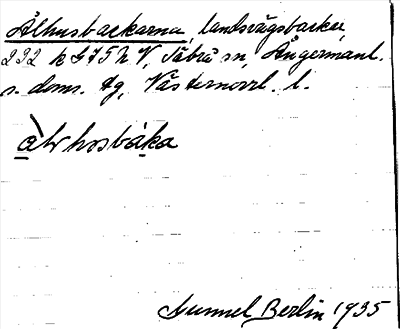 Ålhusbackarna, landsvägsbackar,
232 k G 75 h V, Säbrå sn, Ångermanl.
s. doms. tg, Västernorrl. l.
alhosbàka
Gunnel Berlin 1935